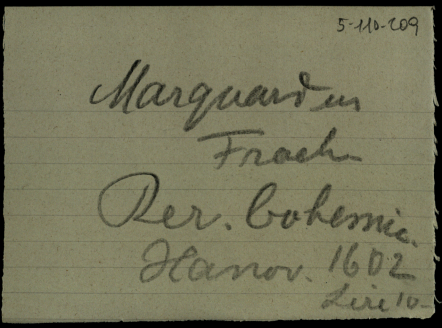 5-110-209
Marquardus
Freher
Rer. bohemic.
Hanov. 1602
Lire 10-